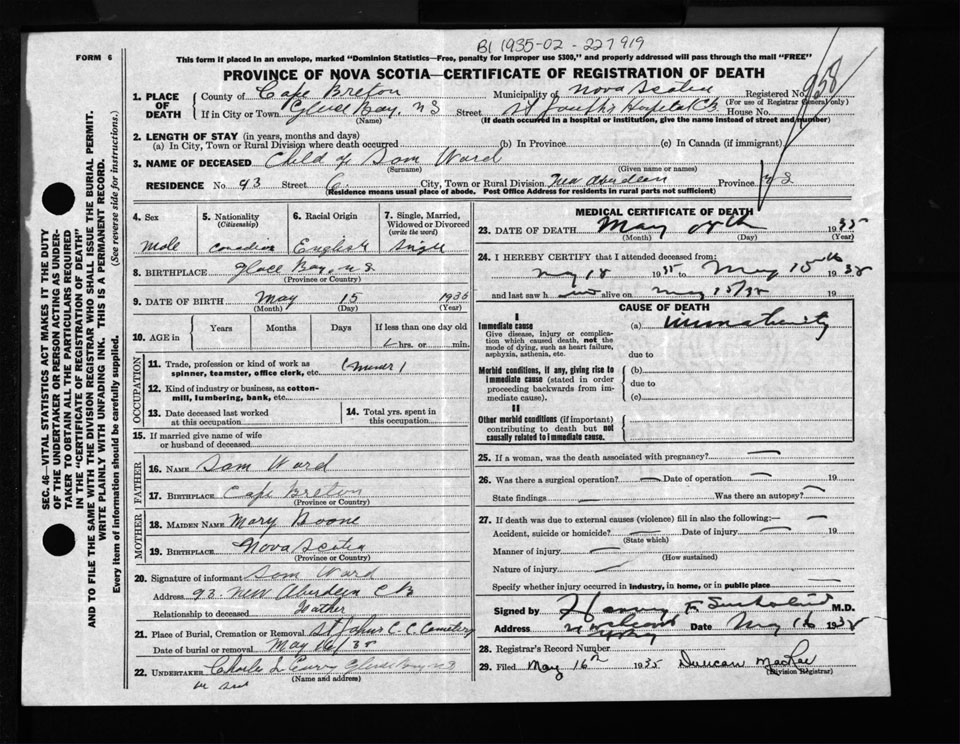 B1 1935-02-227919
FORM 6
This form if placed in an envelope, marked "Dominion Statistics—Free, penalty for improper use $300," and properly addressed will pass through the mail "FREE"
PROVINCE OF NOVA SCOTIA—CERTIFICATE OF REGISTRATION OF DEATH
1. PLACE OF DEATH
County of Cape Breton Municipality of Nova Scotia Registered No.
(For use of Registrar General only)
If in City or Town Glace Bay, N S Street St Joseph's Hospital C.B. House No.
(Name) (If death occurred in a hospital or institution, give the name instead of street and number)
2. LENGTH OF STAY (in years, months and days)
(a) In City, Town or Rural Division where death occurred (b) In Province (c) In Canada (if immigrant)
3. NAME OF DECEASED Child of Sam Ward
(Surname) (Given name or names)
RESIDENCE No. 93 Street City, Town or Rural Division New Aberdeen Province N S
(Residence means usual place of abode. Post Office Address for residents in rural parts not sufficient)
4. Sex Male
5. Nationality (Citizenship) Canadian
6. Racial Origin English
7. Single, Married, Widowed or Divorced (write the word) Single
8. BIRTHPLACE Glace Bay, N S
(Province or Country)
9. DATE OF BIRTH May 15 1935
(Month) (Day) (Year)
10. AGE in Years Months Days If less than one day old
hrs. or min.
OCCUPATION
11. Trade, profession or kind of work as spinner, teamster, office clerk, etc. (Miner)
12. Kind of industry or business, as cotton-mill, lumbering, bank, etc.
13. Date deceased last worked at this occupation
14. Total yrs. spent in this occupation
15. If married give name of wife or husband of deceased
FATHER
16. NAME Sam Ward
17. BIRTHPLACE Cape Breton
(Province or Country)
MOTHER
18. MAIDEN NAME Mary Boone
19. BIRTHPLACE Nova Scotia
(Province or Country)
20. Signature of informant Sam Ward
Address 93 New Aberdeen C B
Relationship to deceased Father
21. Place of Burial, Cremation or Removal St Johns C. C. Cemetery
Date of burial or removal May 16/35
22. UNDERTAKER Charles L Glace Bay N S
(Name and address)
MEDICAL CERTIFICATE OF DEATH
23. DATE OF DEATH May 1935
(Month) (Day) (Year)
24. I HEREBY CERTIFY that I attended deceased from:
May 1935 to May 15th 1935
and last saw h alive on May 15/35
CAUSE OF DEATH
I
Immediate cause
Give disease, injury or complication which caused death, not the mode of dying, such as heart failure, asphyxia, asthenia, etc.
(a) Immaturity
due to
Morbid conditions, if any, giving rise to immediate cause (stated in order proceeding backwards from immediate cause).
(b)
due to
(c)
II
Other morbid conditions (if important) contributing to death but not causally related to immediate cause.
25. If a woman, was the death associated with pregnancy?
26. Was there a surgical operation? Date of operation 19
State findings Was there an autopsy?
27. If death was due to external causes (violence) fill in also the following:
Accident, suicide or homicide? Date of injury 19
(State which)
Manner of injury
(How sustained)
Nature of injury
Specify whether injury occurred in industry, in home, or in public place
Signed by Harvey F. Sutherland M.D.
Address Date May 16 1935
28. Registrar's Record Number
29. Filed May 16th 1935 Duncan MacRae
(Division Registrar)
SEC. 46—VITAL STATISTICS ACT MAKES IT THE DUTY OF THE UNDERTAKER OR PERSON ACTING AS UNDERTAKER TO OBTAIN ALL THE PARTICULARS REQUIRED IN THE "CERTIFICATE OF REGISTRATION OF DEATH" AND TO FILE THE SAME WITH THE DIVISION REGISTRAR WHO SHALL ISSUE THE BURIAL PERMIT.
WRITE PLAINLY WITH UNFADING INK. THIS IS A PERMANENT RECORD.
Every item of information should be carefully supplied. (See reverse side for instructions.)